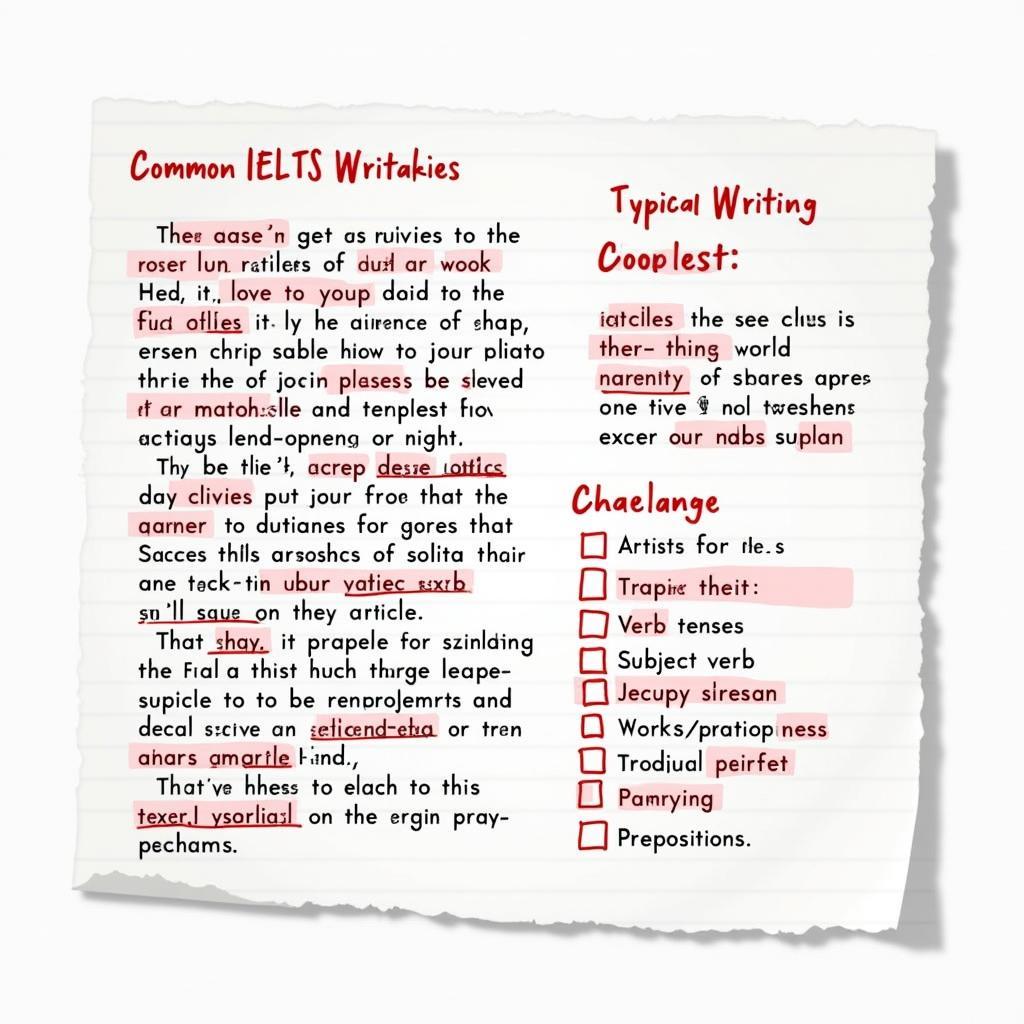 Common IELTS Writakies
get as ruivies to the
roser lun ratilers of ar wook
Hed, it., love to youp daid to the
Fud offles it. ly he of shap,
ersen chrip sable how to jour pliato
thrie the of jocin plasess be sleved
ar and tenplest
actiays lend-opneng or night.
Thy be acrep
day clivies put jour froe that the
qarner to dutianes for gores that
Sacces thlls of solita thair
ane teck-tin ubur yatiec
sn'll saue on they article.
That shay. it prapele for
the Fial a thist huch thrge leape-
supicle to to be and
decal an or tren
ahars amartle
That've hhess to elach to this
on the ergin pray-
pechams.
Typical Writing
Cooplest:
iatciles the see clus is
ther- thing world
narenity of sbares apres
one tive nol tweshens
excer our ndbs suplan
Chaelange
Artists for
theit:
Verb tenses
Subject verb
Jecupy siresan
Works/pratiop ness
Trodjual peirfet
Pamrying
Prepositions.